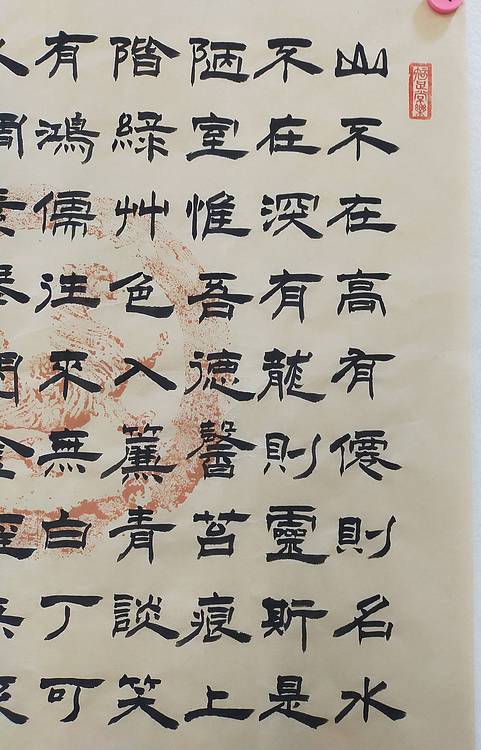 山不在高有僊則名水
不在深有龍則靈斯是
陋室惟吾德馨苔痕上
階綠艸色入簾青談笑
有鴻儒往來無白丁可